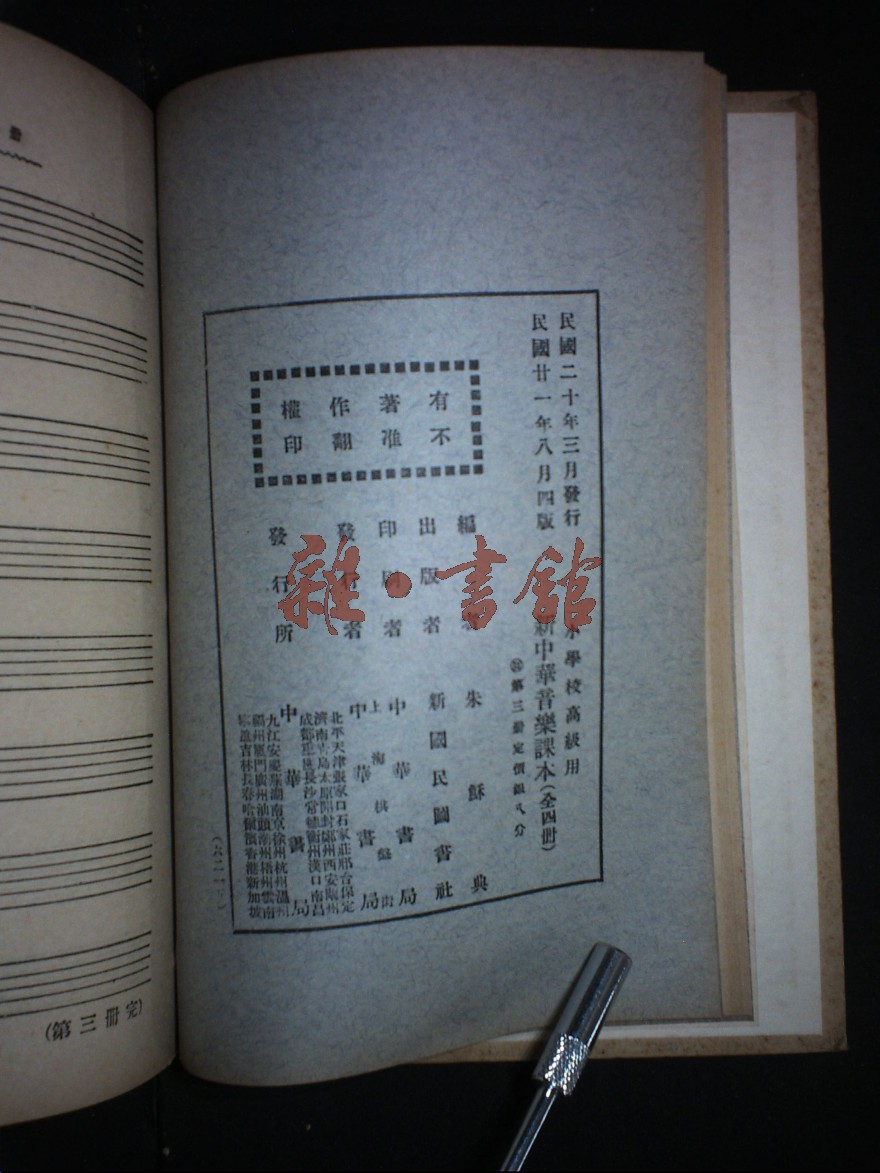 民國二十年三月發行
民國廿一年八月四版
小學校高級用
新中華音樂課本(全四冊)
第三册定價銀弍分
有著作權
不准翻印
編 者 朱穌典
出版者 新國民圖書社
印刷者 中華書局
發行者 上海棋盤街 中華書局
發行所 中華書局
北平天津張家口石家莊邢台保定
濟南青島太原開封鄭州西安蘭州
成都重慶長沙常德衡州漢口南昌
九江安慶蕪湖南京徐州杭州溫州
福州廈門廣州汕頭潮州梧州雲南
吉林長春哈爾濱香港新加坡
(第三冊完)
雜·書館